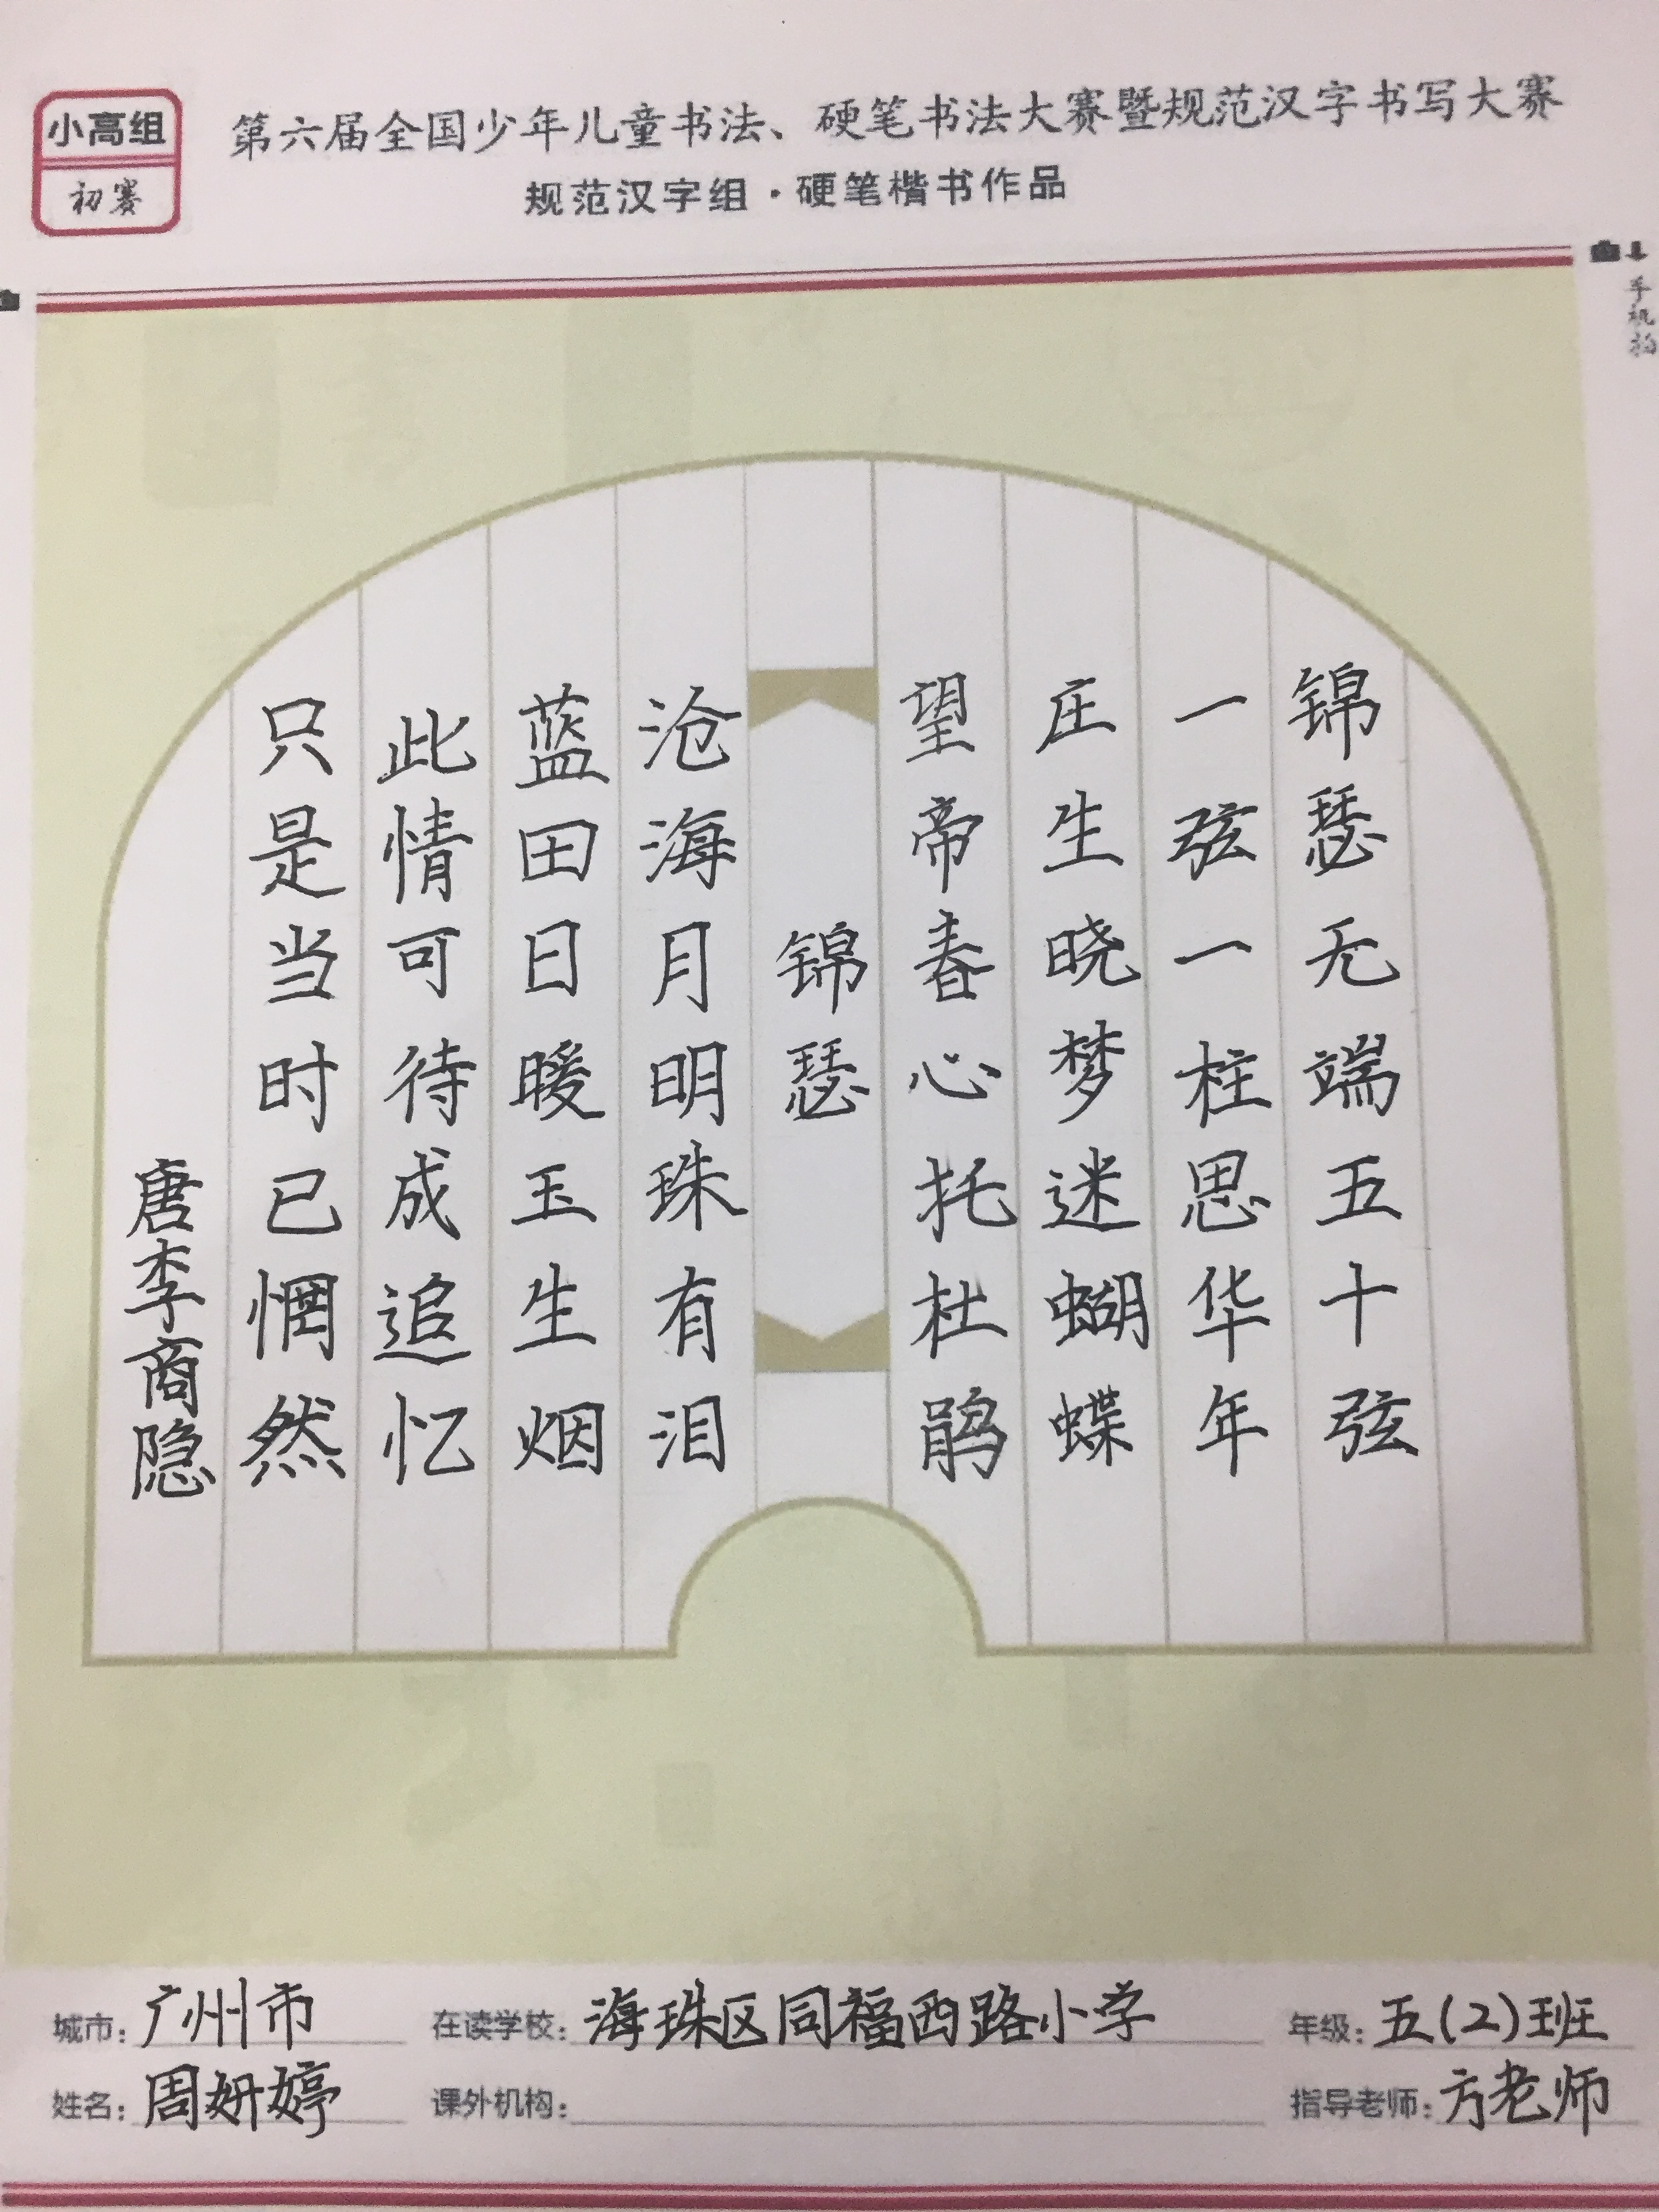 小高组
初赛
第六届全国少年儿童书法、硬笔书法大赛暨规范汉字书写大赛
规范汉字组·硬笔楷书作品
手机拍
锦瑟无端五十弦
一弦一柱思华年
庄生晓梦迷蝴蝶
望帝春心托杜鹃
锦瑟
沧海月明珠有泪
蓝田日暖玉生烟
此情可待成追忆
只是当时已惘然
唐李商隐
城市：广州市 在读学校：海珠区同福西路小学 年级：五(2)班
姓名：周妍婷 课外机构： 指导老师：方老师